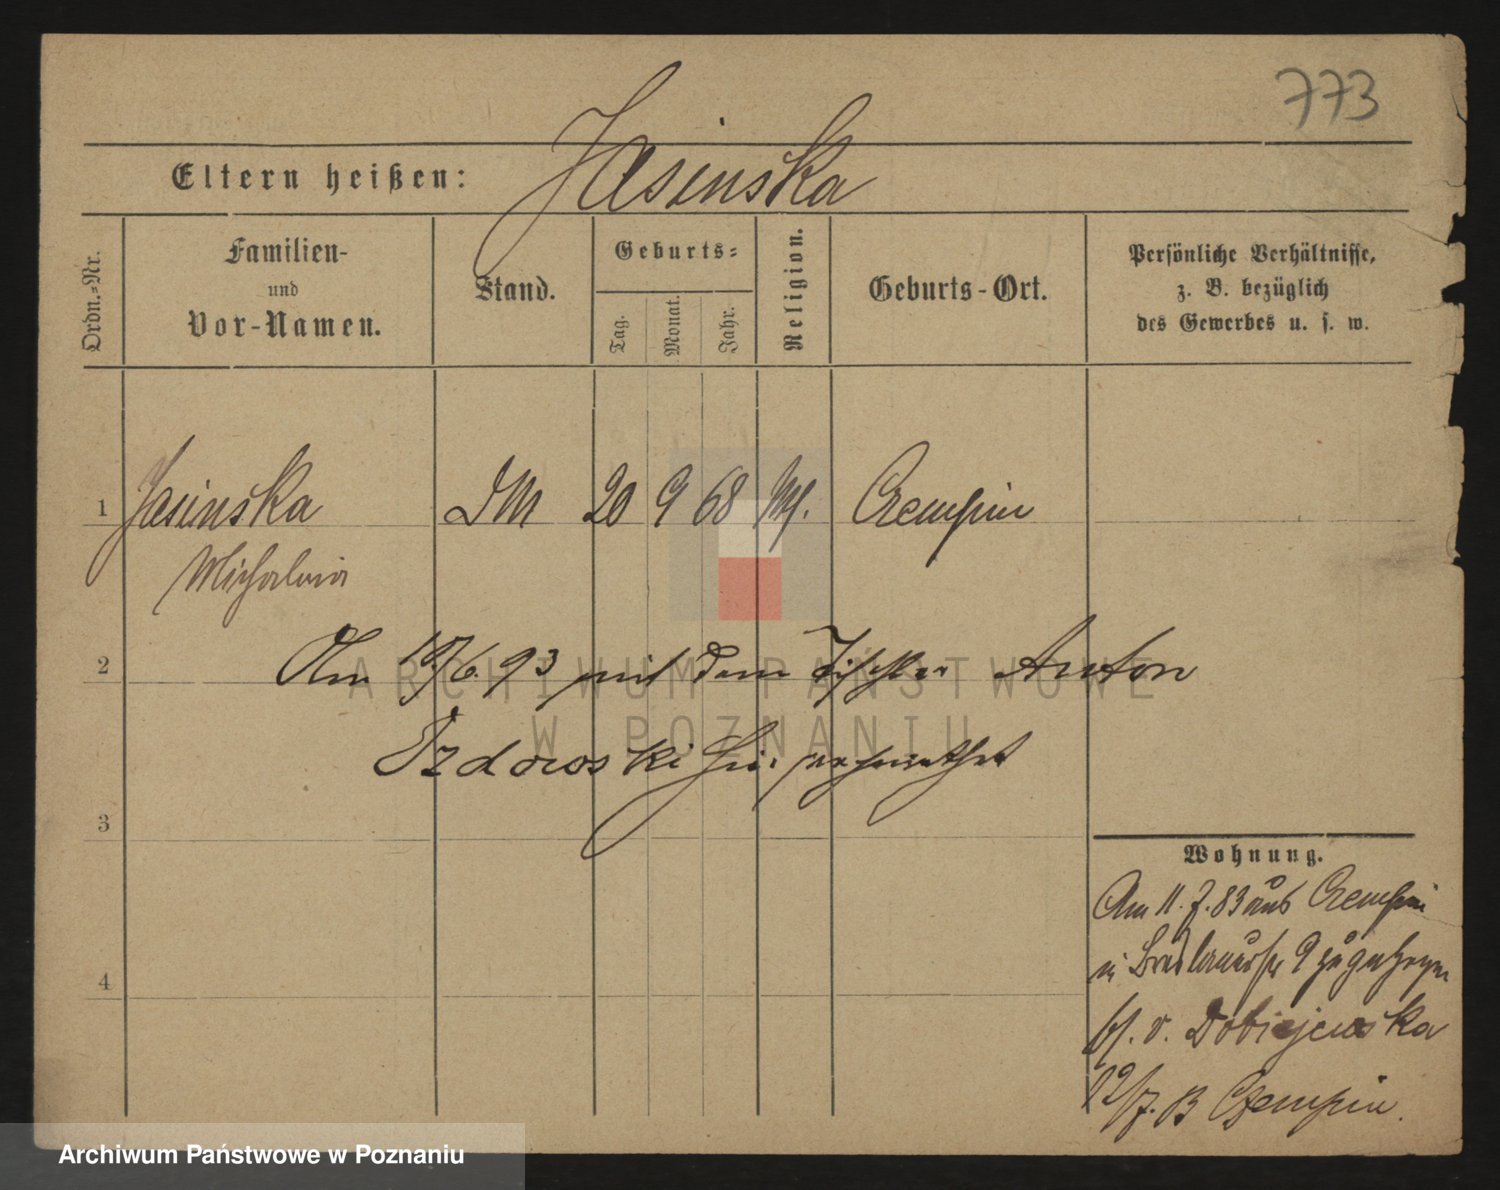 773
Jasinska
Eltern heißen:
Ordn.-Nr.
Familien-
und
Vor-Namen.
Stand.
Geburts-
Tag.
Monat.
Jahr.
Religion.
Geburts-Ort.
Persönliche Verhältnisse,
z. B. bezüglich
des Gewerbes u. s. w.
1 Jasinska DM 20 9 68 Crempin
Michalina
2 Am 19/6. 93 mit dem Tischler Anton
Ozdowski hier verheirathet
3
4
Wohnung.
Am 11. 7. 83 aus Crempin
n Breslauerstr 9 zugezogen
bf. v. Dobiejewska
12/7. B Czempin.
ARCHIWUM PAŃSTWOWE
W POZNANIU
Archiwum Państwowe w Poznaniu